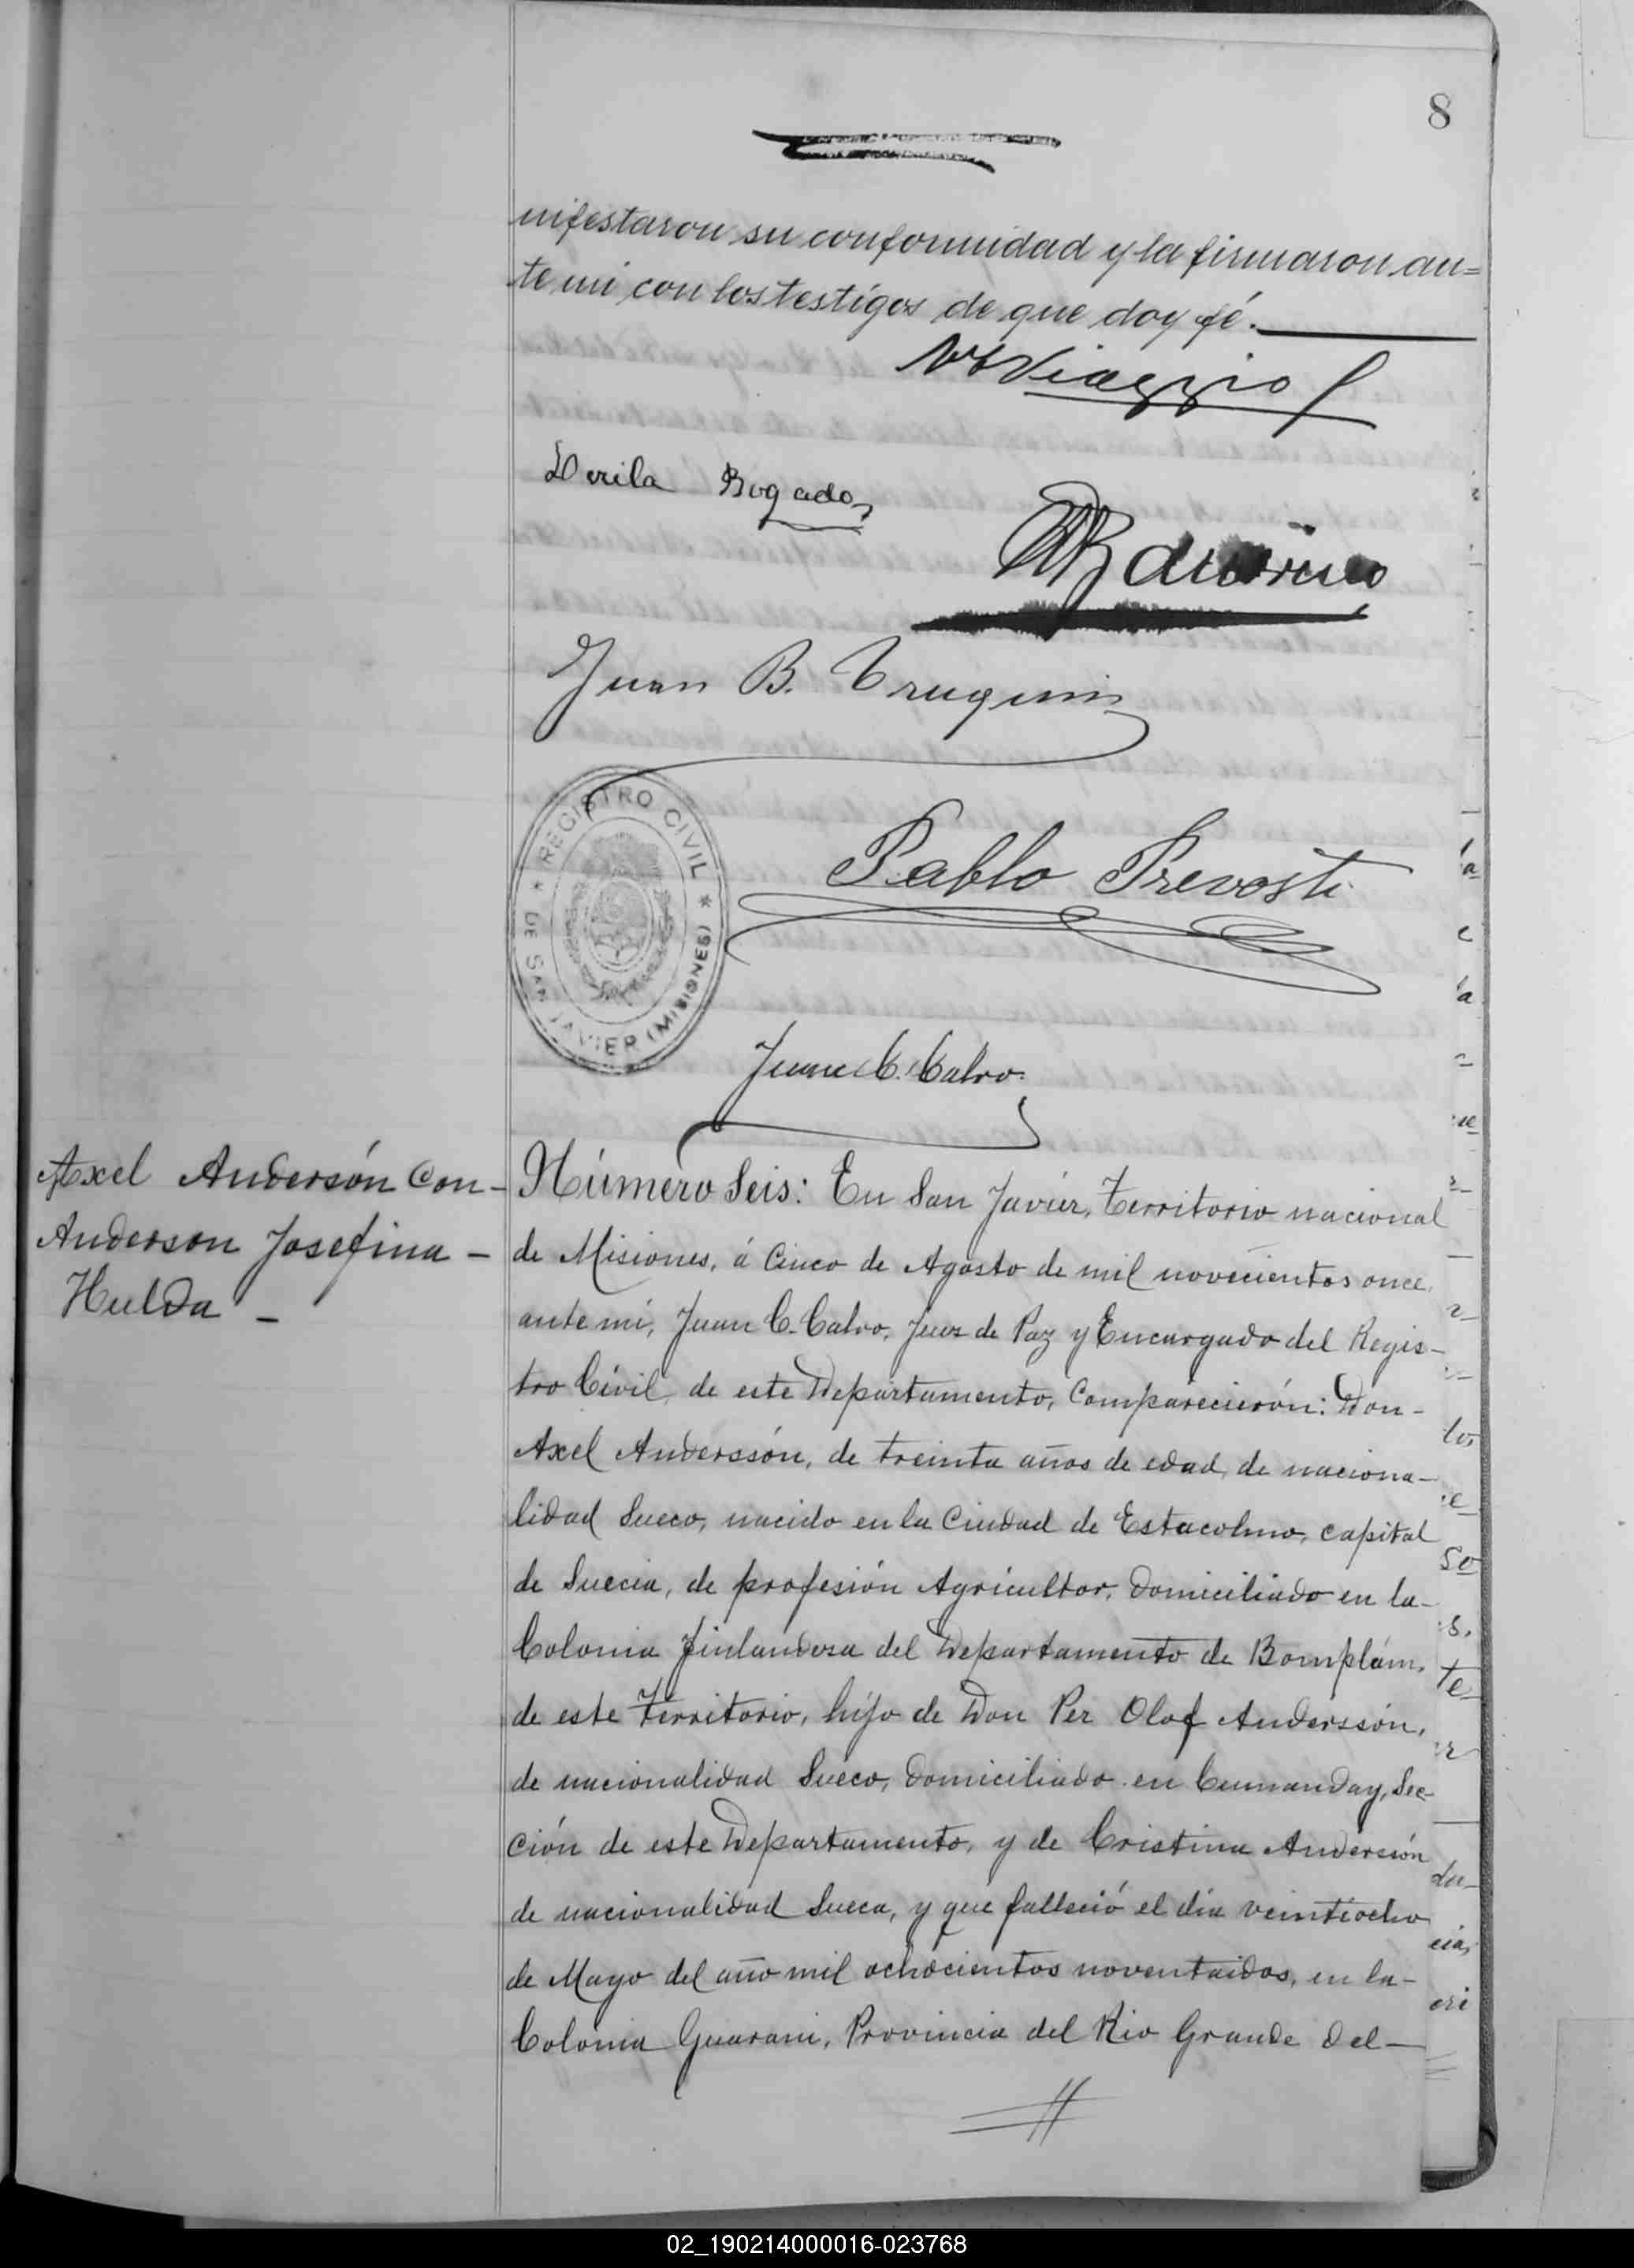 8
nifestaron su conformidad y la firmaron an=
te mi con los testigos de que doy fé.
Viaggio
Bogado
Juan B.
REGISTRO CIVIL
DE SAN JAVIER (MISIONES)
Pablo Prevosti
Juan C. Calvo.
Axel Andersón Con-
Anderson Josefina -
Hulda -
Número Seis: En San Javier, Territorio nacional
de Misiones, á Cinco de Agosto de mil novecientos once,
ante mi, Juan C. Calvo, Juez de Paz y Encargado del Regis-
tro Civil, de este Departamento, Comparecierón: Don-
Axel Anderssón, de treinta años de edad, de naciona-
lidad Sueco, nacido en la Ciudad de Estacolmo, capital
de Suecia, de profesión Agricultor, domiciliado en la-
Colonia Finlandesa del Departamento de Bomplám,
de este Territorio, hijo de Don Per Olof Anderssón,
de nacionalidad Sueco, domiciliado en Cumanday, Sec-
ción de este Departamento, y de Cristina Andersión
de nacionalidad Sueca, y que falleció el dia veintiocho
de Mayo del año mil ochocientos noventaidos, en la-
Colonia Guarani, Provincia del Rio Grande del-
02_190214000016-023768